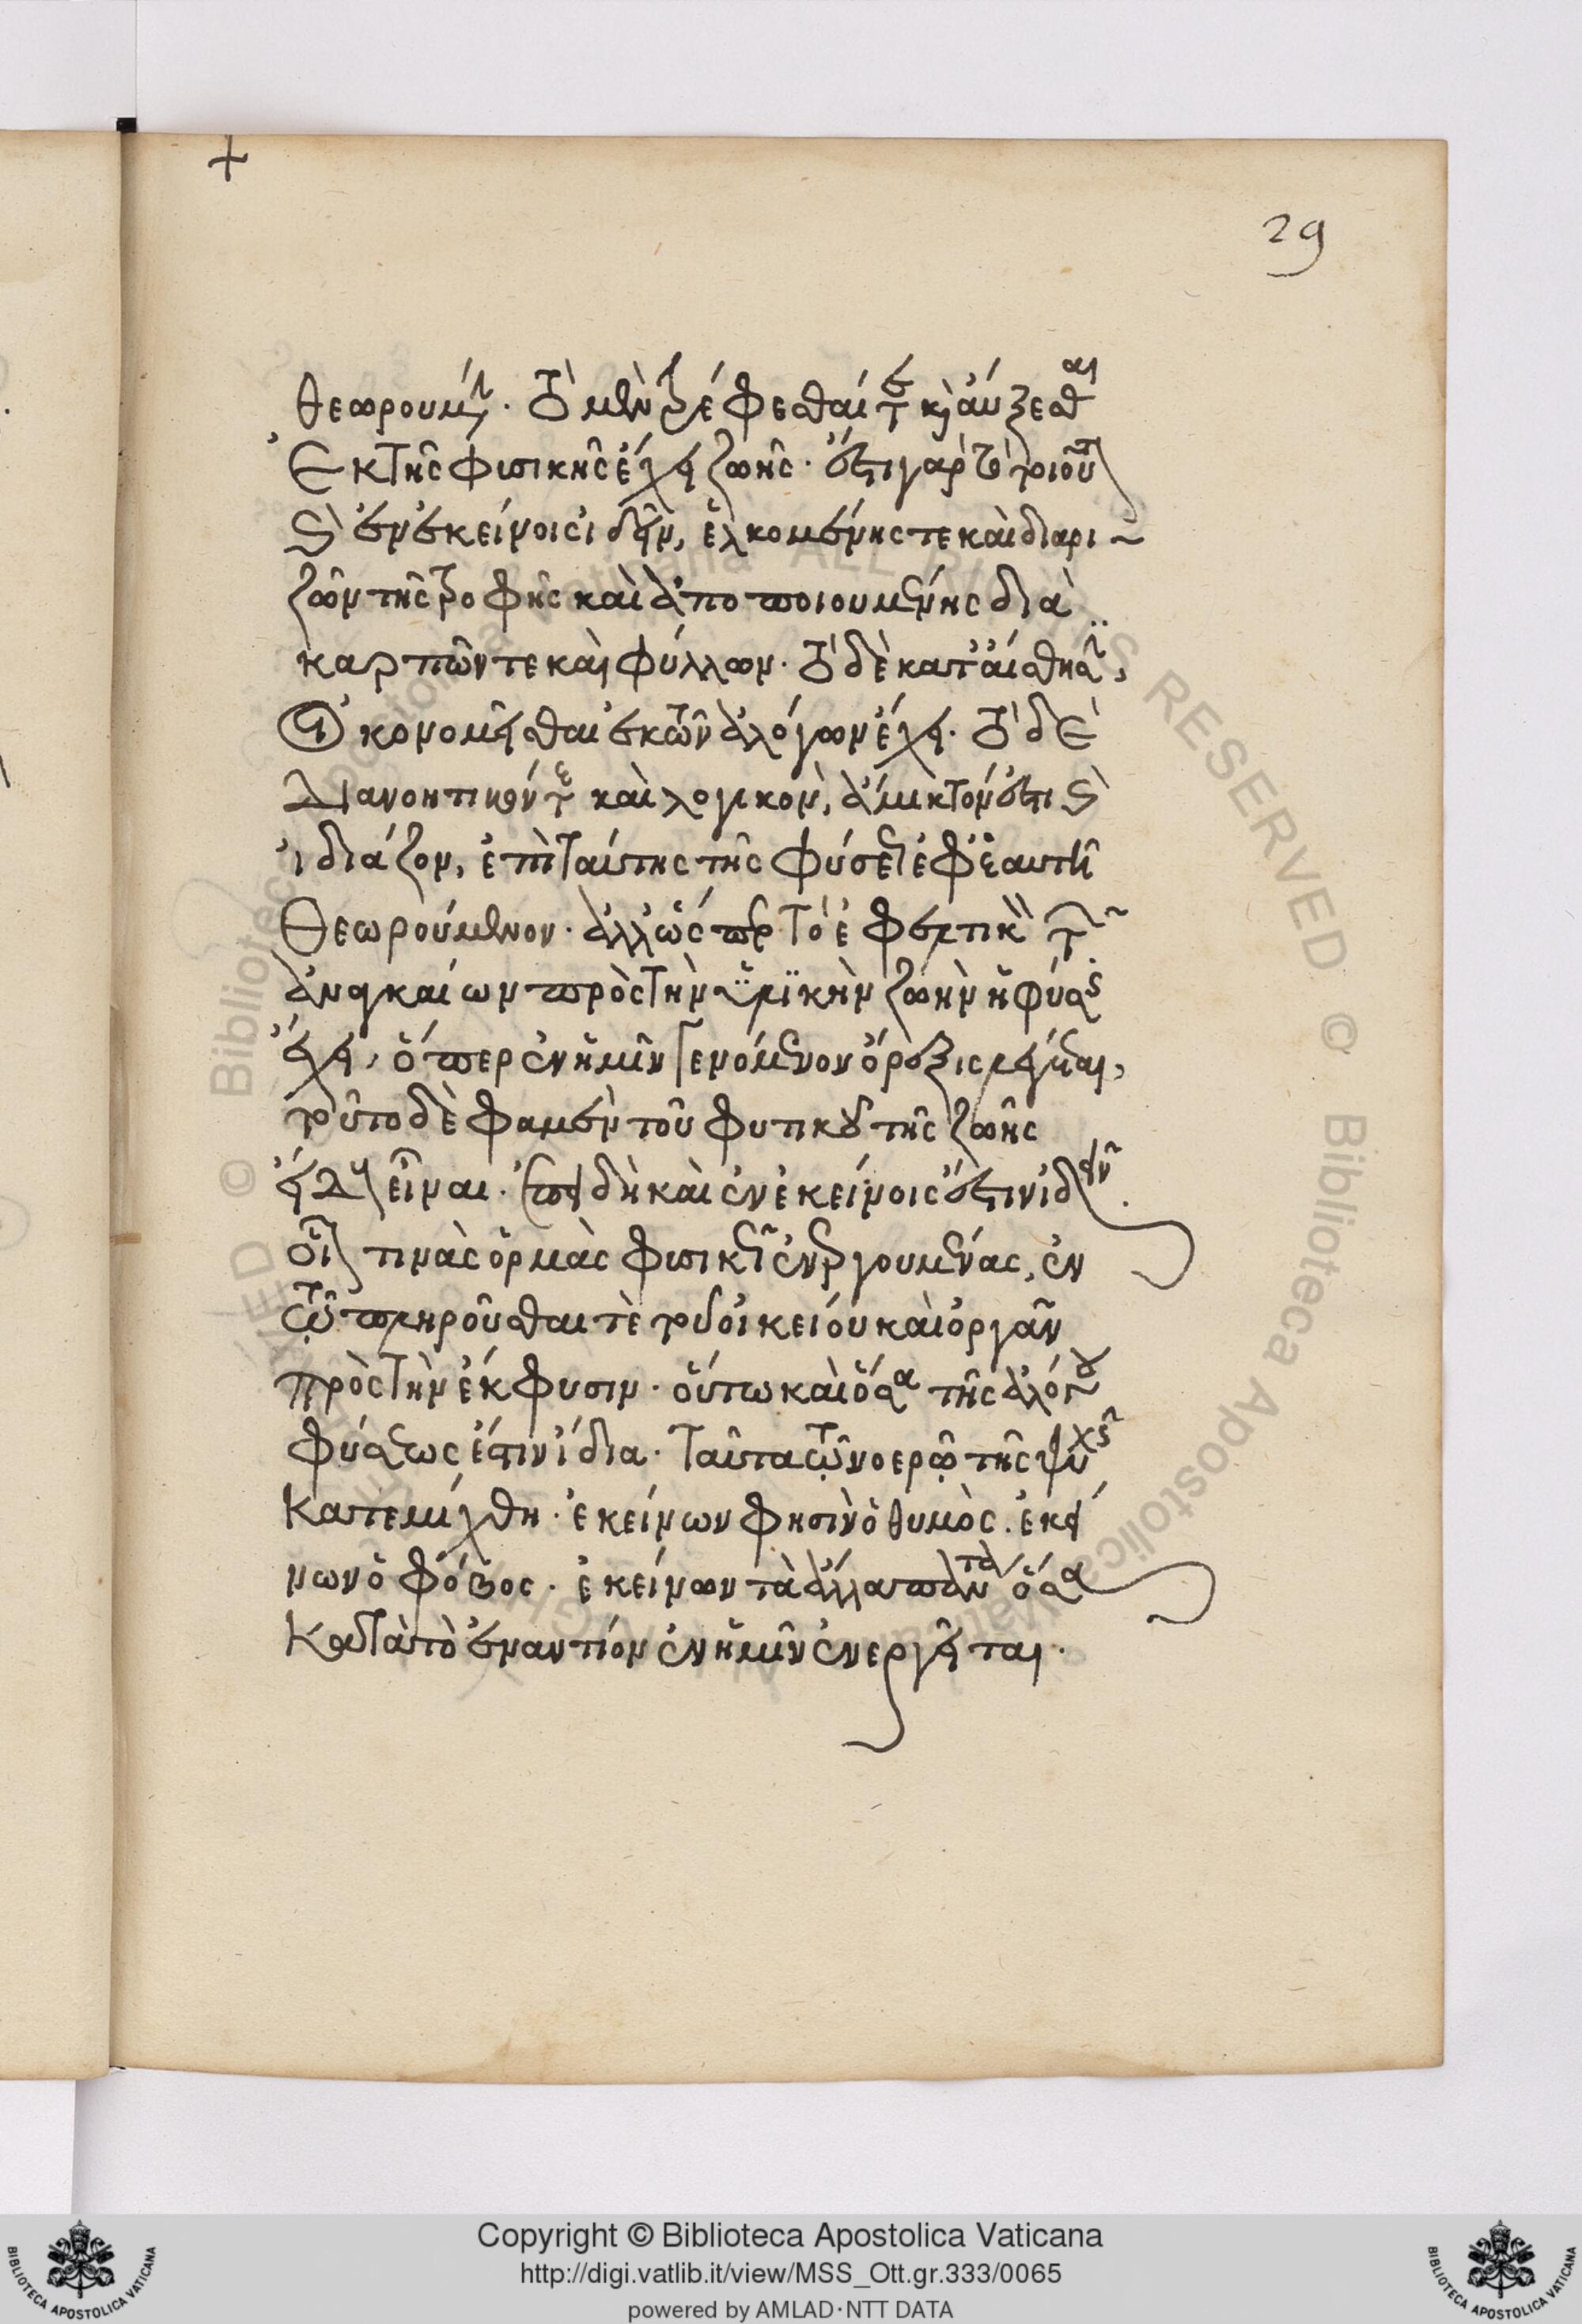 29
θεωρουμένης. τὸ μὲν τρέφεσθαί τε καὶ αὔξεσθαι
ἐκ τῆς φυσικῆς ἔχει ζωῆς. ἔστι γὰρ τὸ τοιοῦτον
καὶ ἐν ἐκείνοις ἰδεῖν, ἑλκομένης τε καὶ διὰ ῥι-
ζῶν τῆς τροφῆς καὶ ἀποποιουμένης διὰ
καρπῶν τε καὶ φύλλων. τὸ δὲ κατ' αἴσθησιν,
οἰκονομεῖσθαι ἐκ τῶν ἀλόγων ἔχει. τὸ δὲ
διανοητικόν τε καὶ λογικὸν, ἄμικτόν ἐστι καὶ
ἰδιάζον, ἐπὶ ταύτης τῆς φύσεως ἐφ' ἑαυτῆς
θεωρούμενον. ἀλλ' ὥσπερ τὸ ἐφερτικὸν τῶν
ἀναγκαίων πρὸς τὴν ὑλικὴν ζωὴν ἡ φύσις
ἔχει, ὅπερ ἐν ἡμῖν γενόμενον ὄρεξις λέγεται,
τοῦτο δὲ φαμὲν τοῦ φυτικοῦ τῆς ζωῆς
εἴδους εἶναι. ἐπεὶ δὴ καὶ ἐν ἐκείνοις ἔστιν ἰδεῖν
οἷόν τινας ὁρμὰς φυσικῶς ἐνεργουμένας, ἐν
τῷ πληροῦσθαι τὲ τοῦ οἰκείου καὶ ὀργᾶν
πρὸς τὴν ἔκφυσιν. οὕτω καὶ ὅσα τῆς ἀλόγου
φύσεως ἐστὶν ἴδια. ταῦτα τῷ νοερῷ τῆς ψυχῆς
κατεμίχθη. ἐκείνων φησὶν ὁ θυμὸς. ἐκεί
νων ὁ φόβος. ἐκείνων τὰ ἄλλα πάντα ὅσα
κατὰ τὸ ἐναντίον ἐν ἡμῖν ἐνεργεῖται.
Copyright © Biblioteca Apostolica Vaticana
http://digi.vatlib.it/view/MSS_Ott.gr.333/0065
powered by AMLAD·NTT DATA